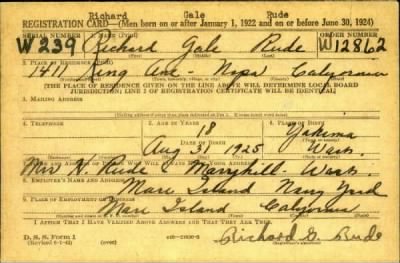 Richard Gale Rude
REGISTRATION CARD—(Men born on or after January 1, 1922 and on or before June 30, 1924)
SERIAL NUMBER 1. NAME (Print) ORDER NUMBER
W239 Richard Gale Rude W12862
2. PLACE OF RESIDENCE (Print)
King Ave. Napa California
[THE PLACE OF RESIDENCE GIVEN ON THE LINE ABOVE WILL DETERMINE LOCAL BOARD
JURISDICTION; LINE 2 OF REGISTRATION CERTIFICATE WILL BE IDENTICAL]
3. MAILING ADDRESS
4. TELEPHONE 5. AGE IN YEARS 6. PLACE OF BIRTH
18 Yakima
DATE OF BIRTH
Aug 31 1925 Wash.
Mrs H. Rude Maryhill- Wash.
8. EMPLOYER'S NAME AND ADDRESS
Mare Island Navy Yard
9. PLACE OF EMPLOYMENT OR BUSINESS
Mare Island California
I AFFIRM THAT I HAVE VERIFIED ABOVE ANSWERS AND THAT THEY ARE TRUE.
D. S. S. Form 1
Richard G. Rude